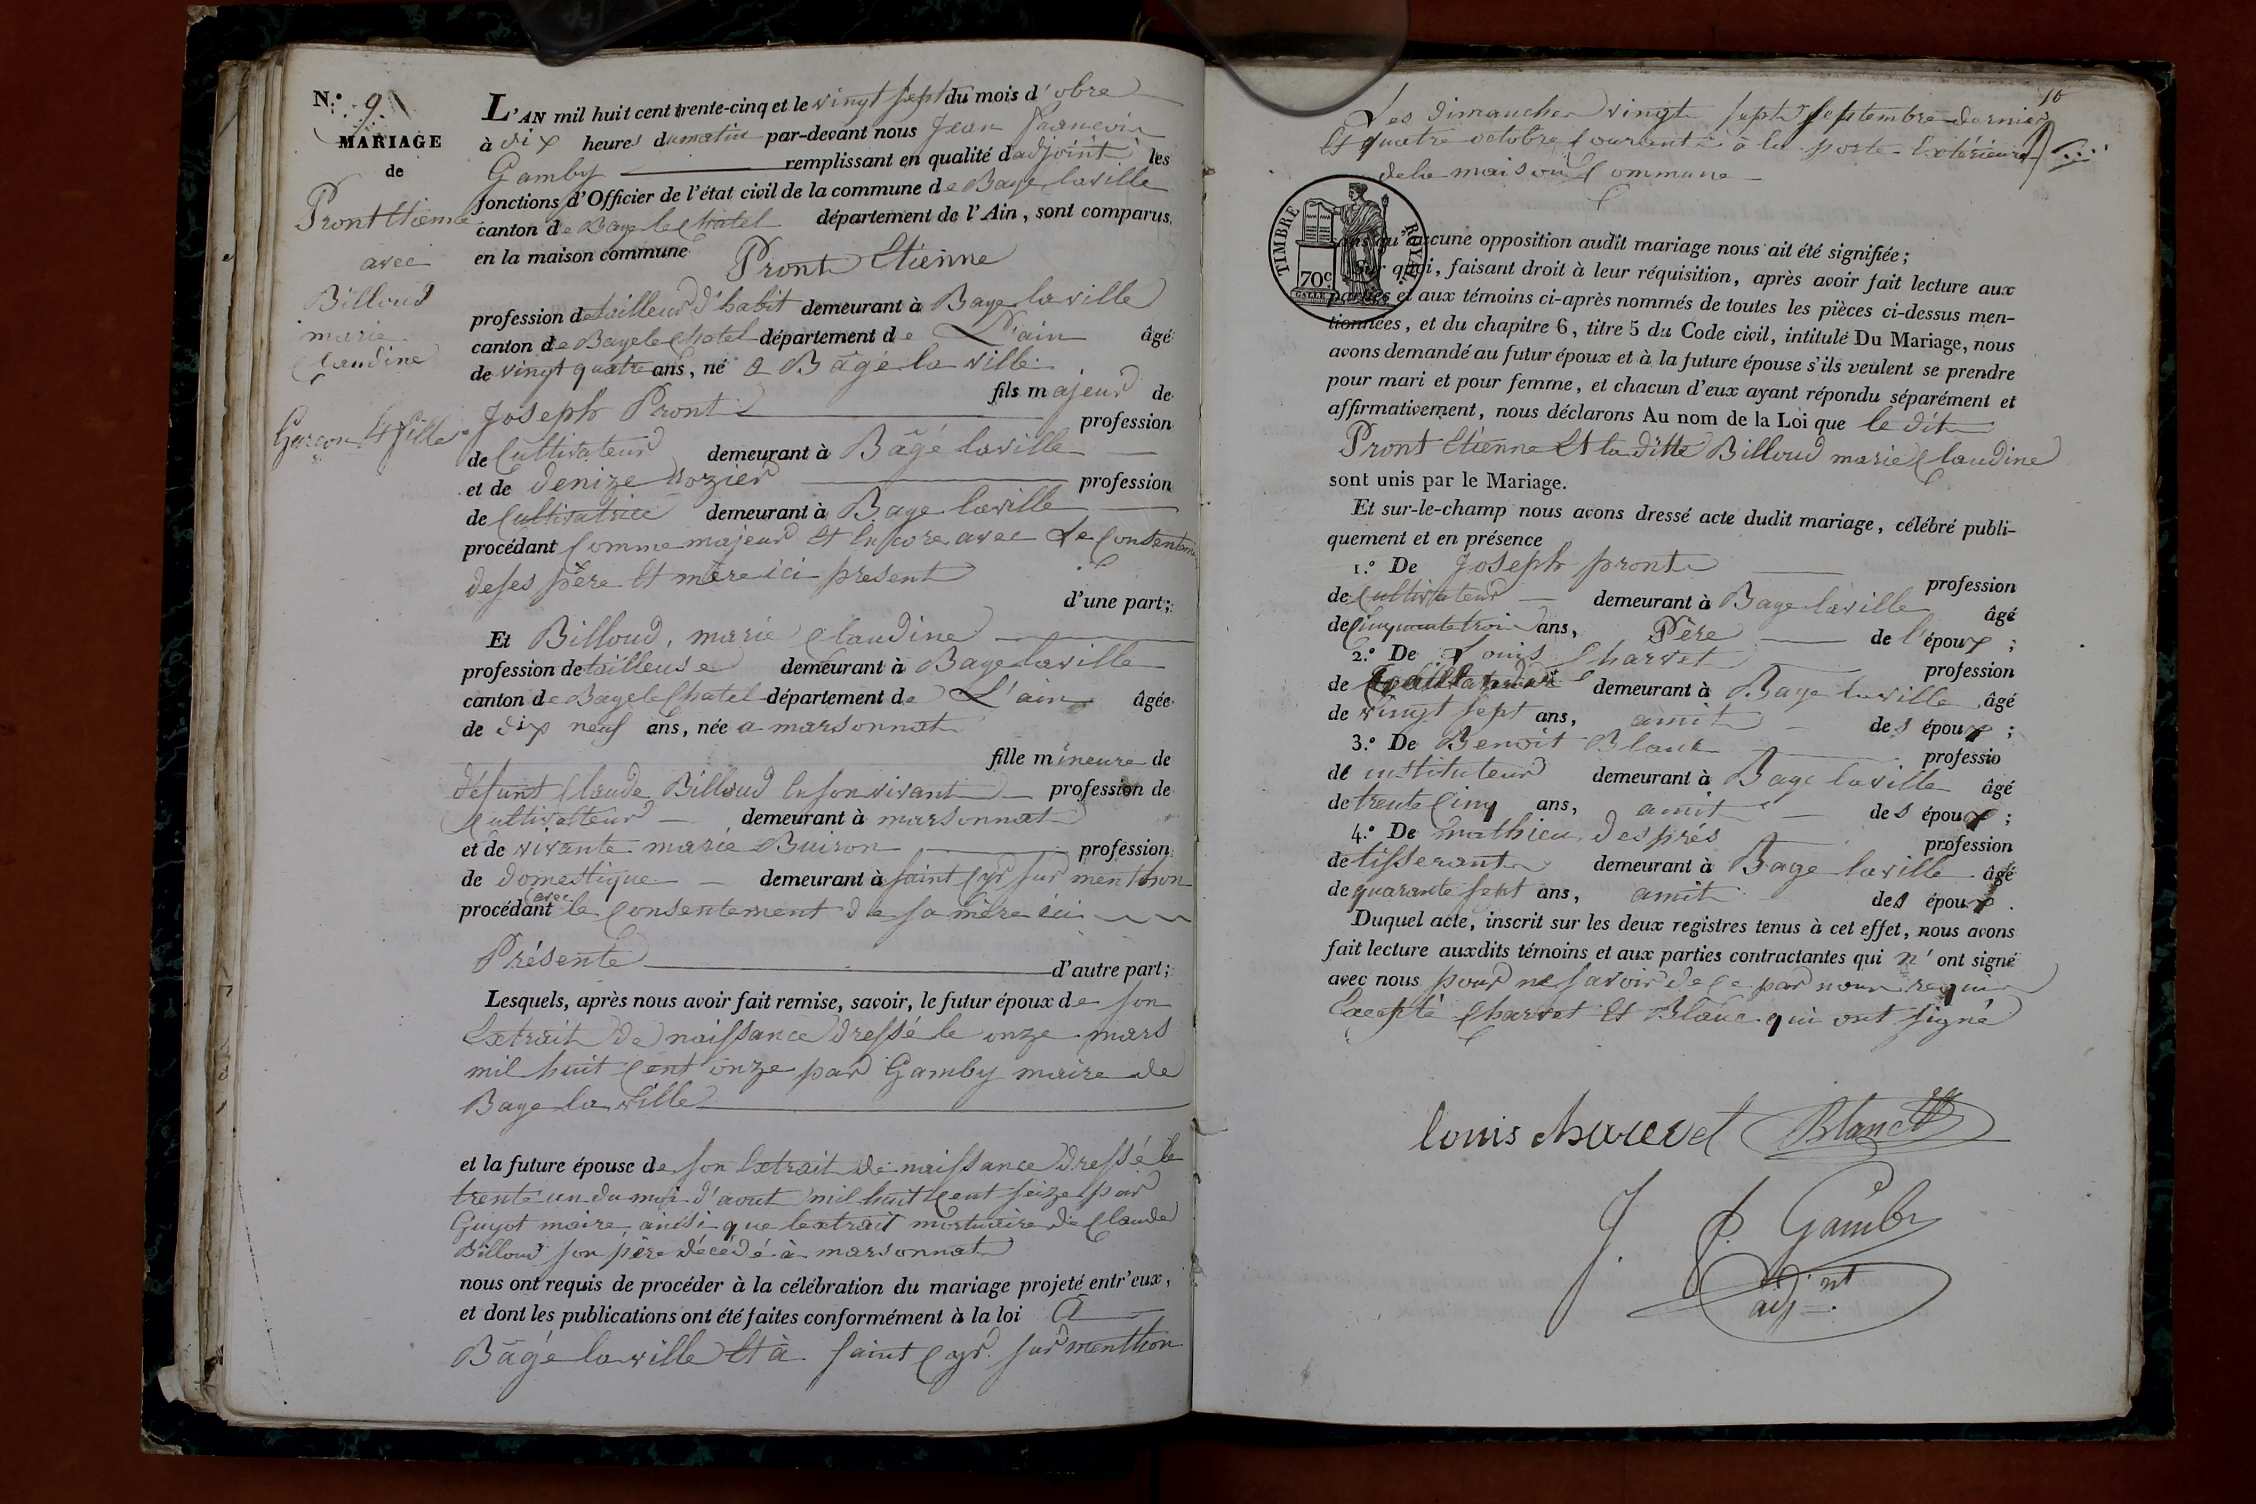 N.° 9
MARIAGE
de
Pront Etienne
avec
Billoud
marie
Claudine
Garçon & fille
L'AN mil huit cent trente-cinq et le vingt sept du mois d'obre
à dix heures du matin par-devant nous Jean françois
Gamby remplissant en qualité d'adjoint les
fonctions d'Officier de l'état civil de la commune de Bage laville
canton de Bage le Chatel département de l'Ain, sont comparus,
en la maison commune Pront Etienne
profession de tailleur d'habit demeurant à Bage laville
canton de Bage le Chatel département de L'ain âgé
de vingt quatre ans, né a Bâgé la ville
fils majeur de
Joseph Pront profession
de Cultivateur demeurant à Bâgé laville
et de denize Rozier profession
de Cultivatrice demeurant à Bage laville
procédant Comme majeur Et Encore avec Le Consentem
de ses père Et mère ici present
d'une part;
Et Billoud, marie Claudine
profession de tailleuse demeurant à Bage laville
canton de Bage le Chatel département de L'ain âgée
de dix neuf ans, née a marsonnat
fille mineure de
défunt Claude Billoud En son vivant profession de
Cultivateur demeurant à marsonnat
et de vivante marie Buiron profession
de domestique demeurant à Saint Cyr sur menthon
avec
procédant le Consentement de sa mère ici
Présente d'autre part;
Lesquels, après nous avoir fait remise, savoir, le futur époux de son
Extrait de naissance dressé le onze mars
mil huit Cent onze par Gamby maire de
Bage la ville
et la future épouse de son Extrait de naissance dressé le
trente un du moi d'aout mil huit Cent seize par
Guyot maire ainsi que lextrait mortuaire de Claude
Billoud son père décédé à marsonnat
nous ont requis de procéder à la célébration du mariage projeté entr'eux,
et dont les publications ont été faites conformément à la loi A
Bâgé la ville Et à Saint Cyr sur menthon
16
Les dimanches vingt sept Septembre dernier
Et quatre octobre Courant à la porte Extérieure
de la maison Commune
TIMBRE ROYAL
70c
sans qu'aucune opposition audit mariage nous ait été signifiée;
Sur quoi, faisant droit à leur réquisition, après avoir fait lecture aux
parties et aux témoins ci-après nommés de toutes les pièces ci-dessus men-
tionnées, et du chapitre 6, titre 5 du Code civil, intitulé Du Mariage, nous
avons demandé au futur époux et à la future épouse s'ils veulent se prendre
pour mari et pour femme, et chacun d'eux ayant répondu séparément et
affirmativement, nous déclarons Au nom de la Loi que le dit
Pront Etienne Et la ditte Billoud marie Claudine
sont unis par le Mariage.
Et sur-le-champ nous avons dressé acte dudit mariage, célébré publi-
quement et en présence
1.° De Joseph pront profession
de Cultivateur demeurant à Bage laville âgé
de Cinquante trois ans, Père de l'époux;
2.° De Louis Charvet profession
de demeurant à Bage laville âgé
de vingt sept ans, amit des époux;
3.° De Benoit Blanc professio
de instituteur demeurant à Bage laville âgé
de trente Cinq ans, amit des époux;
4.° De mathieu després profession
de tisserant demeurant à Bage laville âgé
de quarante sept ans, amit des époux.
Duquel acte, inscrit sur les deux registres tenus à cet effet, nous avons
fait lecture auxdits témoins et aux parties contractantes qui n'ont signé
avec nous pour ne savoir de Ce par nous requis
Excepté Charvet Et Blanc qui ont signé
louis charvet Blanc
J. f. Gamby
adj.nt